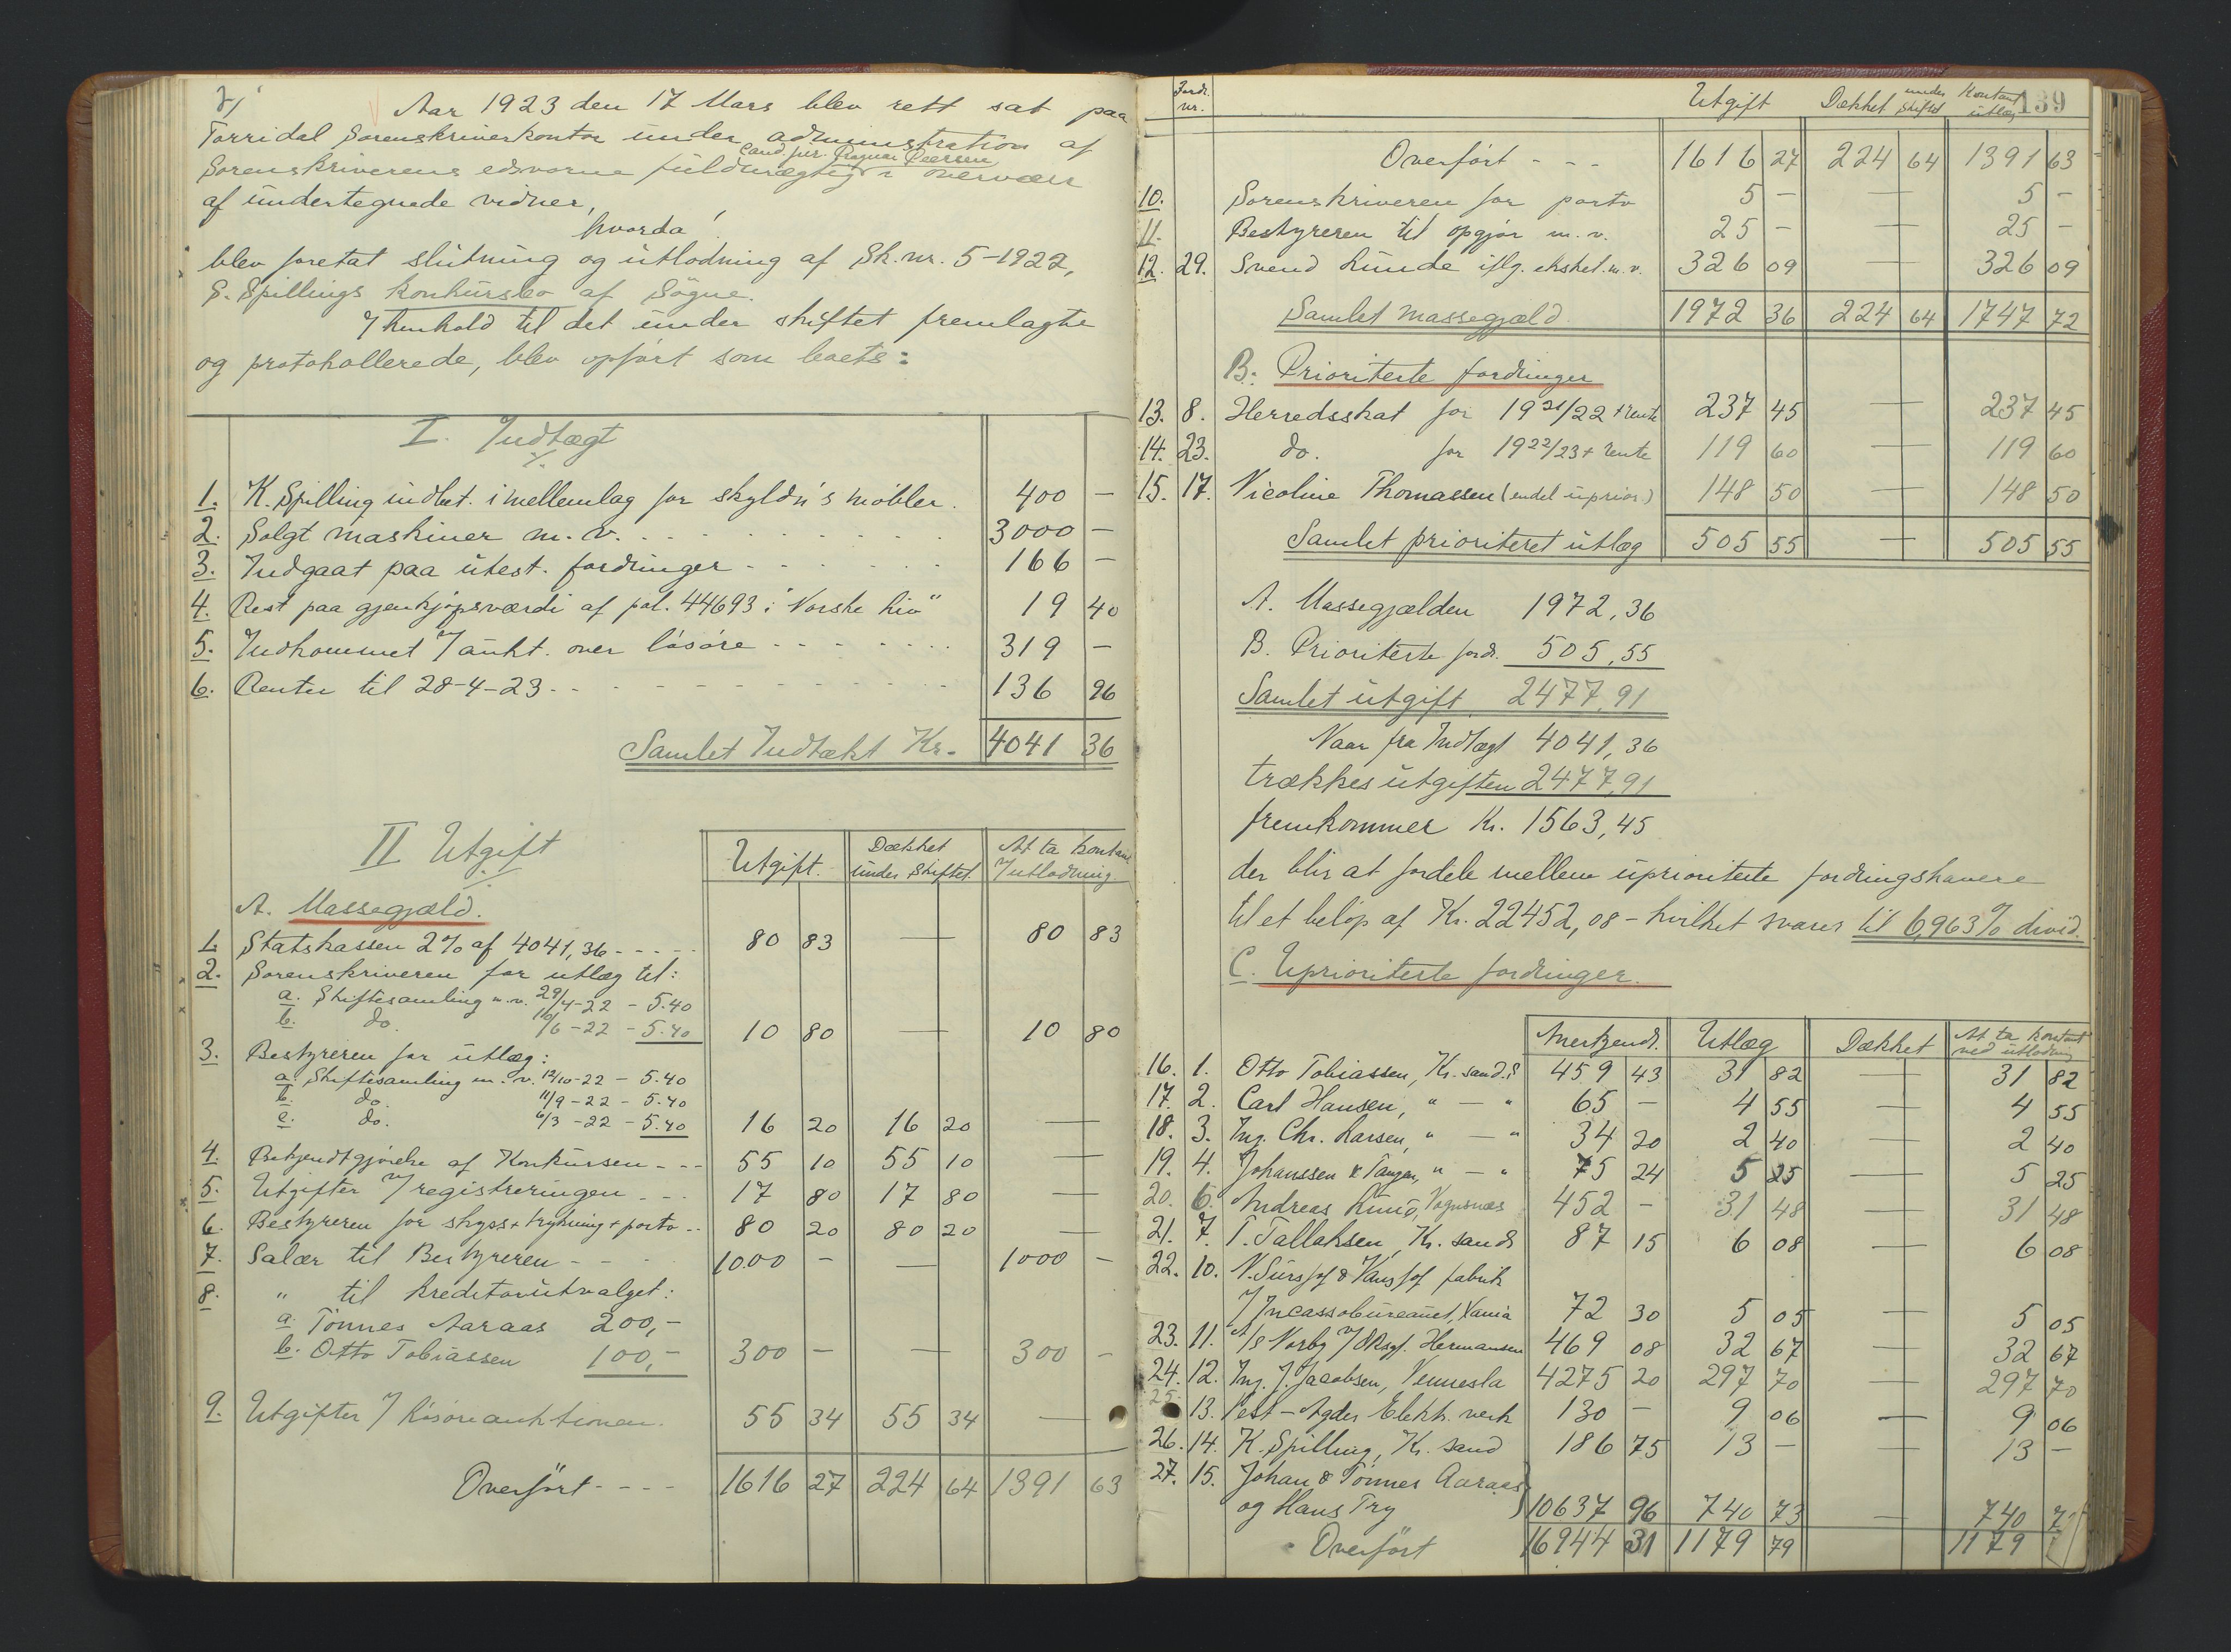 Aar 1923 den 17 Mars blev rett sat paa
Torridal Sorenskriverkontor under administration af
Cand jur. Ragnar Peersen
Sorenskriverens edsvorne fuldmægtig i overvær
af undertegnede vidner,
hvorda
blev foretat slutning og utlodning af Sk. nr. 5-1922,
S. Spillings konkursbo af Søgne.
I henhold til det under skiftet fremlagte
og protokollerede, blev opført som boets:
I. Indtægt
1. K. Spilling indbet. i mellemlag for skyldn's møbler. 400 -
2. Solgt maskiner m. v. 3000 -
3. Indgaat paa utest. fordringer 166 -
4. Rest paa gjenkjøpsværdi af pol. 44693 i "Norske Liv" 19 40
5. Indkommet v/ aukt. over løsøre 319 -
6. Renter til 28-4-23 136 96
Samlet Indtækt Kr. 4041 36
II Utgift
Utgift. Dækket under skiftet. At ta kontant v/utlodning.
A. Massegjæld.
1. Statskassen 2% af 4041,36 80 83 — 80 83
2. Sorenskriveren for utlæg til:
a. Skiftesamling m.v. 29/4-22 - 5.40
b. do. 10/6-22 - 5.40 10 80 — 10 80
3. Bestyreren for utlæg:
a. Skiftesamling m. v. 12/10-22 - 5.40
b. do. 11/9-22 - 5.40
c. do. 6/3-22 - 5.40 16 20 16 20 —
4. Bekjendtgjørelse af Konkursen 55 10 55 10 —
5. Utgifter v/ registreringen 17 80 17 80 —
6. Bestyreren for skyss + trykning + porto 80 20 80 20 —
7. Salær til Bestyreren 1000 - — 1000 -
8. " til kreditorutvalget:
a. Tønnes Aaraas 200,-
b. Otto Tobiassen 100,- 300 - — 300 -
9. Utgifter v/ løsøreauktionen. 55 34 55 34 —
Overført 1616 27 224 64 1391 63
Fordr. nr. Utgift Dækket under skiftet Kontant utlæg 139
Overført 1616 27 224 64 1391 63
10. Sorenskriveren for porto 5 - — 5 -
11. Bestyreren til opgjør m. v. 25 - — 25 -
12. 29. Svend Lunde iflg. ekstet. m. v. 326 09 — 326 09
Samlet massegjæld 1972 36 224 64 1747 72
B. Prioriterte fordringer
13. 8. Herredsskat for 1921/22 + rente 237 45 — 237 45
14. 23. do. for 1922/23 + rente 119 60 — 119 60
15. 17. Nicoline Thomassen (endel uprior.) 148 50 — 148 50
Samlet prioriteret utlæg 505 55 — 505 55
A. Massegjælden 1972,36
B. Prioriterte fordr. 505,55
Samlet utgift 2477,91
Naar fra Indtægt 4041,36
trækkes utgiften 2477,91
fremkommer Kr. 1563,45
der blir at fordele mellem uprioriterte fordringshavere
til et beløp af Kr. 22452,08 - hvilket svarer til 6,963% divid.
C. Uprioriterte fordringer.
Anerkjendt. Utlæg Dækket At ta kontant ved utlodning
16. 1. Otto Tobiassen, Kr. sand.S 459 43 31 82 — 31 82
17. 2. Carl Hansen, " — " 65 - 4 55 — 4 55
18. 3. Ing. Chr. Larsen, " — " 34 20 2 40 — 2 40
19. 4. Johanssen & Tangen, " — " 75 24 5 25 — 5 25
20. 6. Andreas Lunø, Vognsnæs 452 - 31 48 — 31 48
21. 7. T. Tallaksen, Kr. sands 87 15 6 08 — 6 08
22. 10. fabrik
v/ Incassobureauet, Xania 72 30 5 05 — 5 05
23. 11. A/s Norby v/ Hermansen 469 08 32 67 — 32 67
24. 12. Ing. J. Jacobsen, Vennesla 4275 20 297 70 — 297 70
25. 13. Vest-Agder Elektr. verk 130 - 9 06 — 9 06
26. 14. K. Spilling, Kr. sand 186 75 13 - — 13 -
27. 15. Johan & Tønnes Aaraas
og Hans Try 10637 96 740 73 — 740 7
Overført 16944 31 1179 79 1179